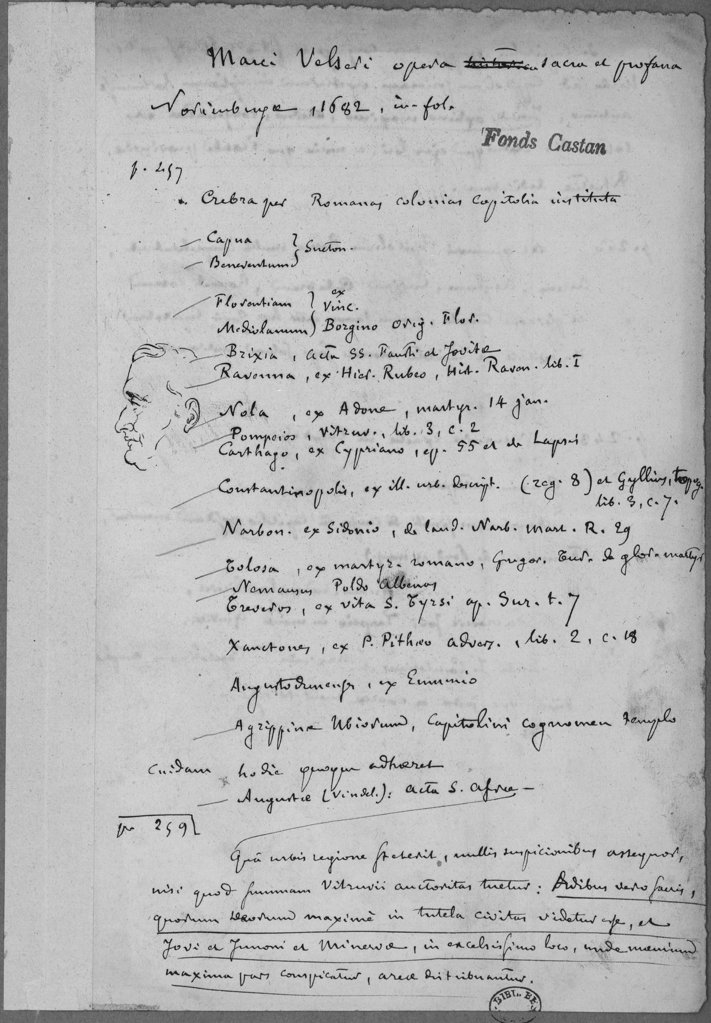 Marci Velseri opera sacra et profana
Norimbergæ, 1682, in-fol.
Fonds Castan
p. 257
Crebra per Romanas colonias Capitolia instituta
Capua } Sueton.
Beneventum
Florentiam } ex Vinc.
Mediolanum } Borgino orig. Flor.
Brixia, acta SS. Fausti et Jovitæ
Ravenna, ex Hier. Rubeo, Hist. Raven. lib. I
Nola, ex Adone, martyr. 14 jan.
Pompeios, Vitruv., lib. 3, c. 2
Carthago, ex Cypriano, ep. 55 et de Lapsis
Constantinopolis, ex ill. urb. descript. (reg. 8) et Gyllius, topog.
lib. 3, c. 7.
Narbon. ex Sidonio, de laud. Narb. mart. R. 29
Tolosa, ex martyr. romano, Gregor. Tur. de glor. martyr
Nemausus Poldo Albenas
Treveros, ex vita S. Tyrsi ap. Sur. t. 7
Xanctones, ex P. Pithæo advers., lib. 2, c. 18
Augustodunenses, ex Eumenio
Agrippinæ Ubiorum, Capitolini cognomen templo
cuidam hodie quoque adhæret
Augustæ (Vindel.): acta S. Afræ —
p. 259
Quâ urbis regione steterit, nullis suspicionibus assequor,
nisi quod summam Vitruvii auctoritas tuetur: Ædibus vero sacris,
quorum deorum maximè in tutela civitas videtur esse, et
Jovi et Junoni et Minervæ, in excelsissimo loco, unde mœnium
maxima pars conspicatur, areæ distribuantur.
BIBL. BE